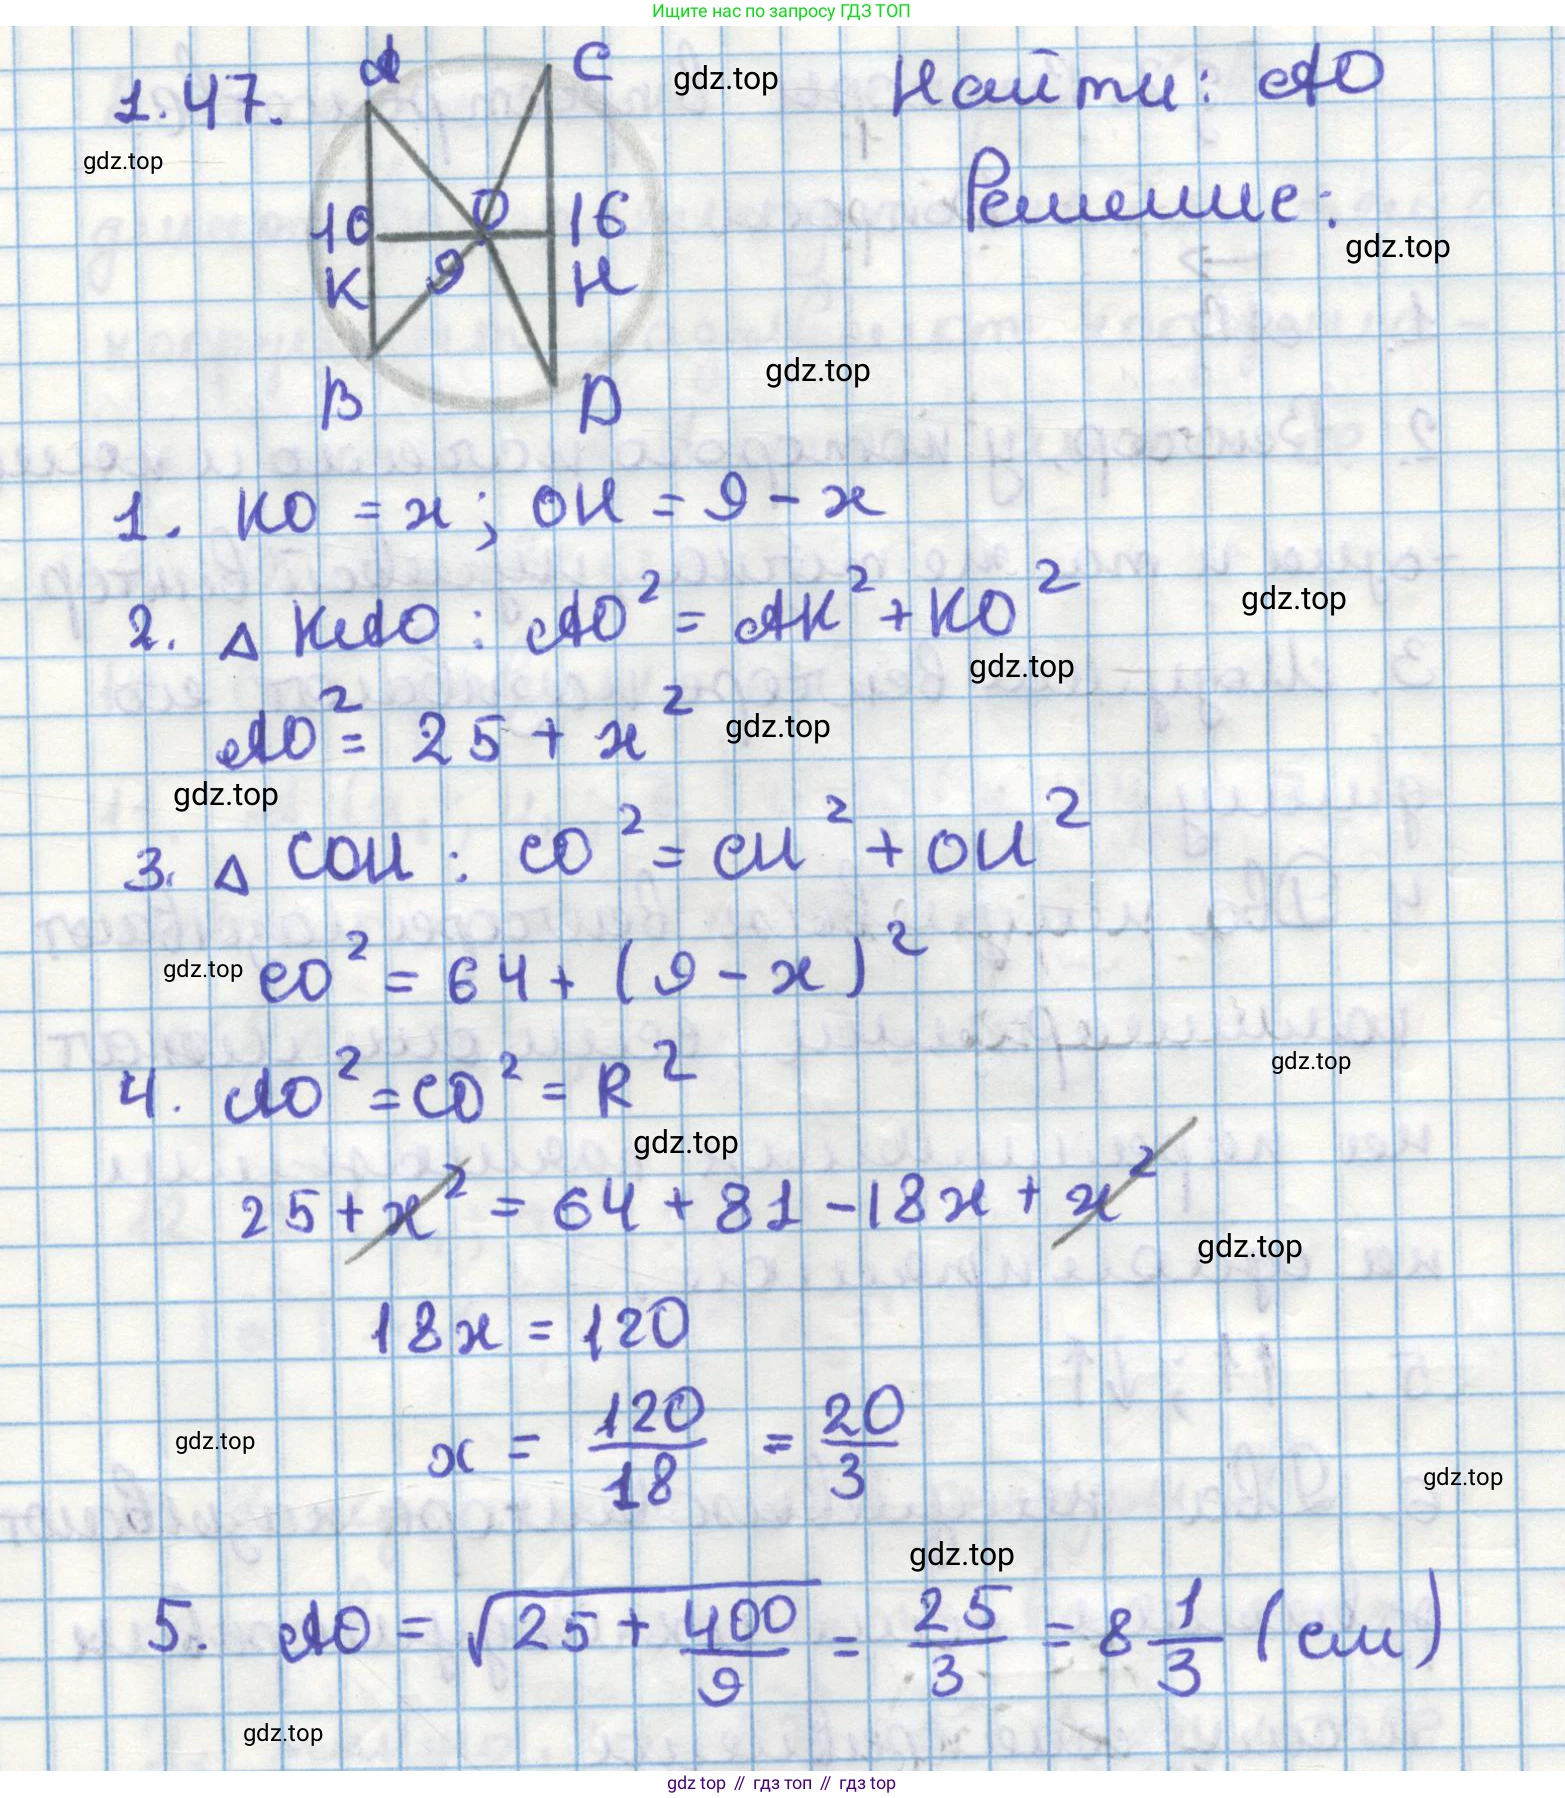 Ищите нас по запросу ГДЗ ТОП
1.47.
A
C
gdz.top
Найти: AO
gdz.top
Решение:
10
O
16
gdz.top
K
9
H
gdz.top
B
D
1. KO = x; OH = 9 - x
gdz.top
2. △ KAO : AO² = AK² + KO²
gdz.top
AO² = 25 + x²
gdz.top
gdz.top
3. △ COH : CO² = CH² + OH²
gdz.top
CO² = 64 + (9 - x)²
gdz.top
4. AO² = CO² = R²
gdz.top
25 + x² = 64 + 81 - 18x + x²
gdz.top
18x = 120
gdz.top
x = 120/18 = 20/3
gdz.top
gdz.top
5. AO = √25 + 400/9 = 25/3 = 8 1/3 (см)
gdz.top
gdz top // гдз топ // гдз top